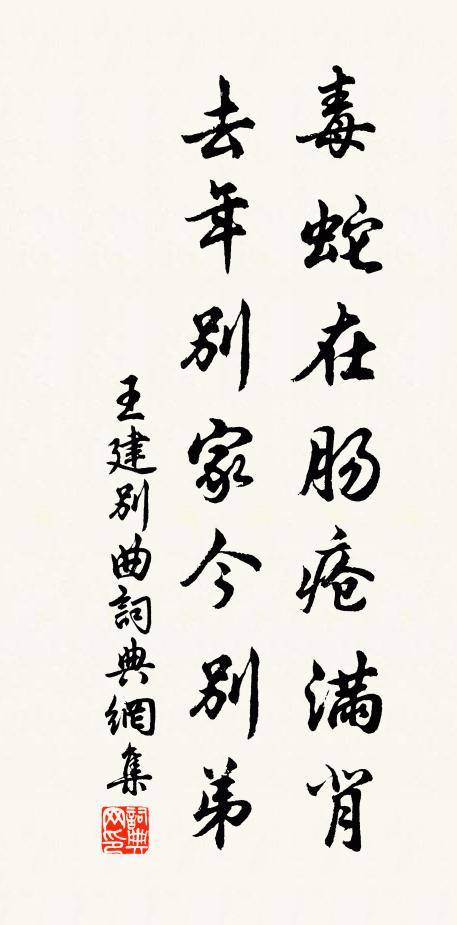 毒蛇在肠疮满背
去年别家今别弟
王建别曲詞典網集
詞典网印